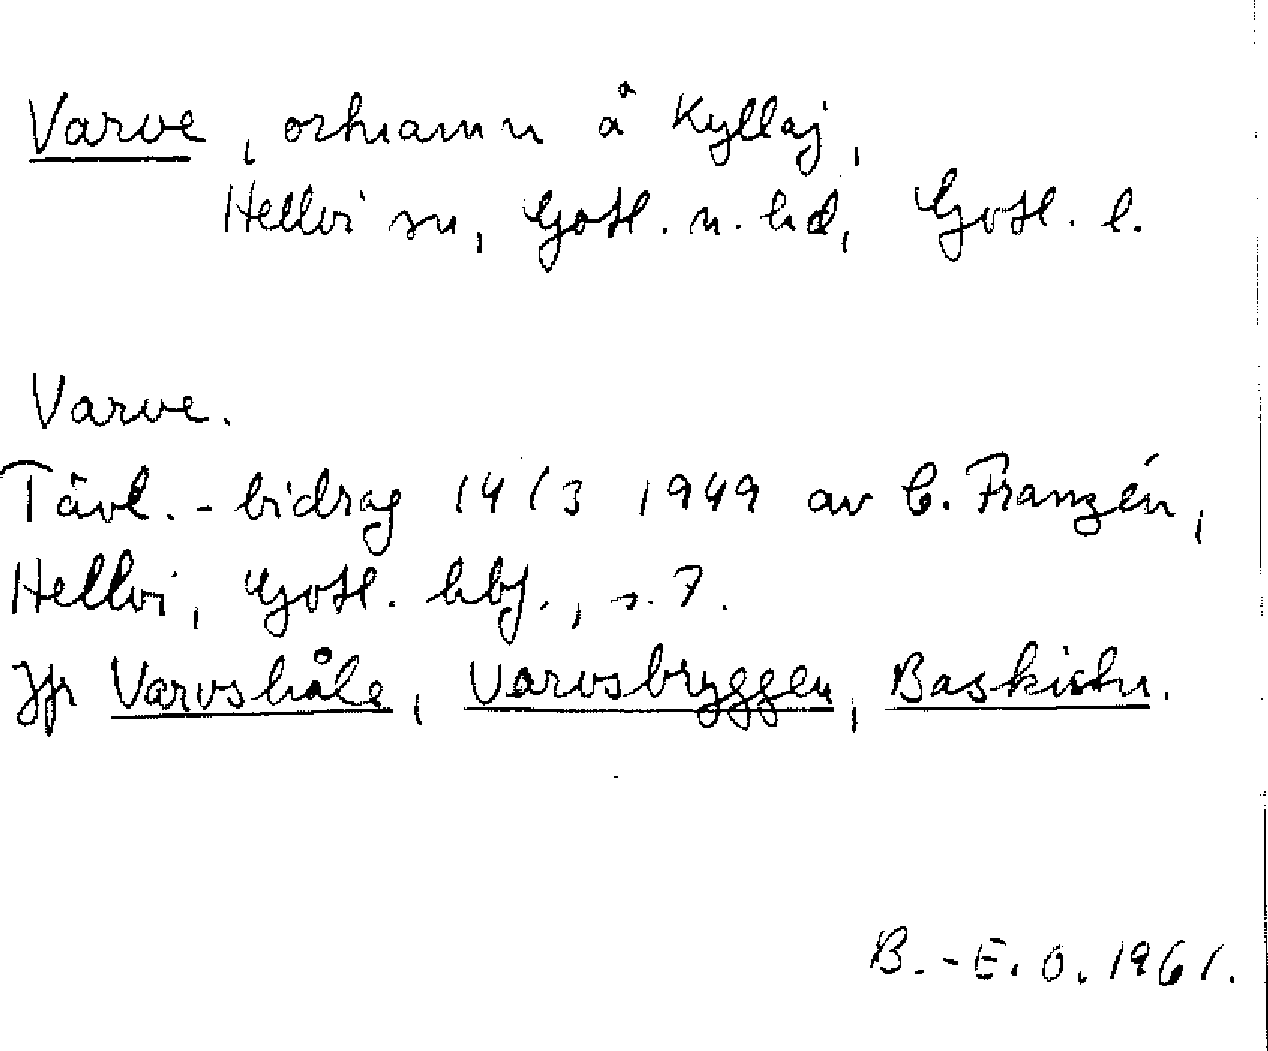 Varve, ortnamn å Kyllaj,
Hellvi sn, Gotl. n. hd, Gotl. l.
Varve.
Tävl.-bidrag 14/3 1949 av C. Franzén,
Hellvi, Gotl. hbf., s. 7.
Jfr Varvshåle, Varvsbryggen,
B.-E. O. 1961.